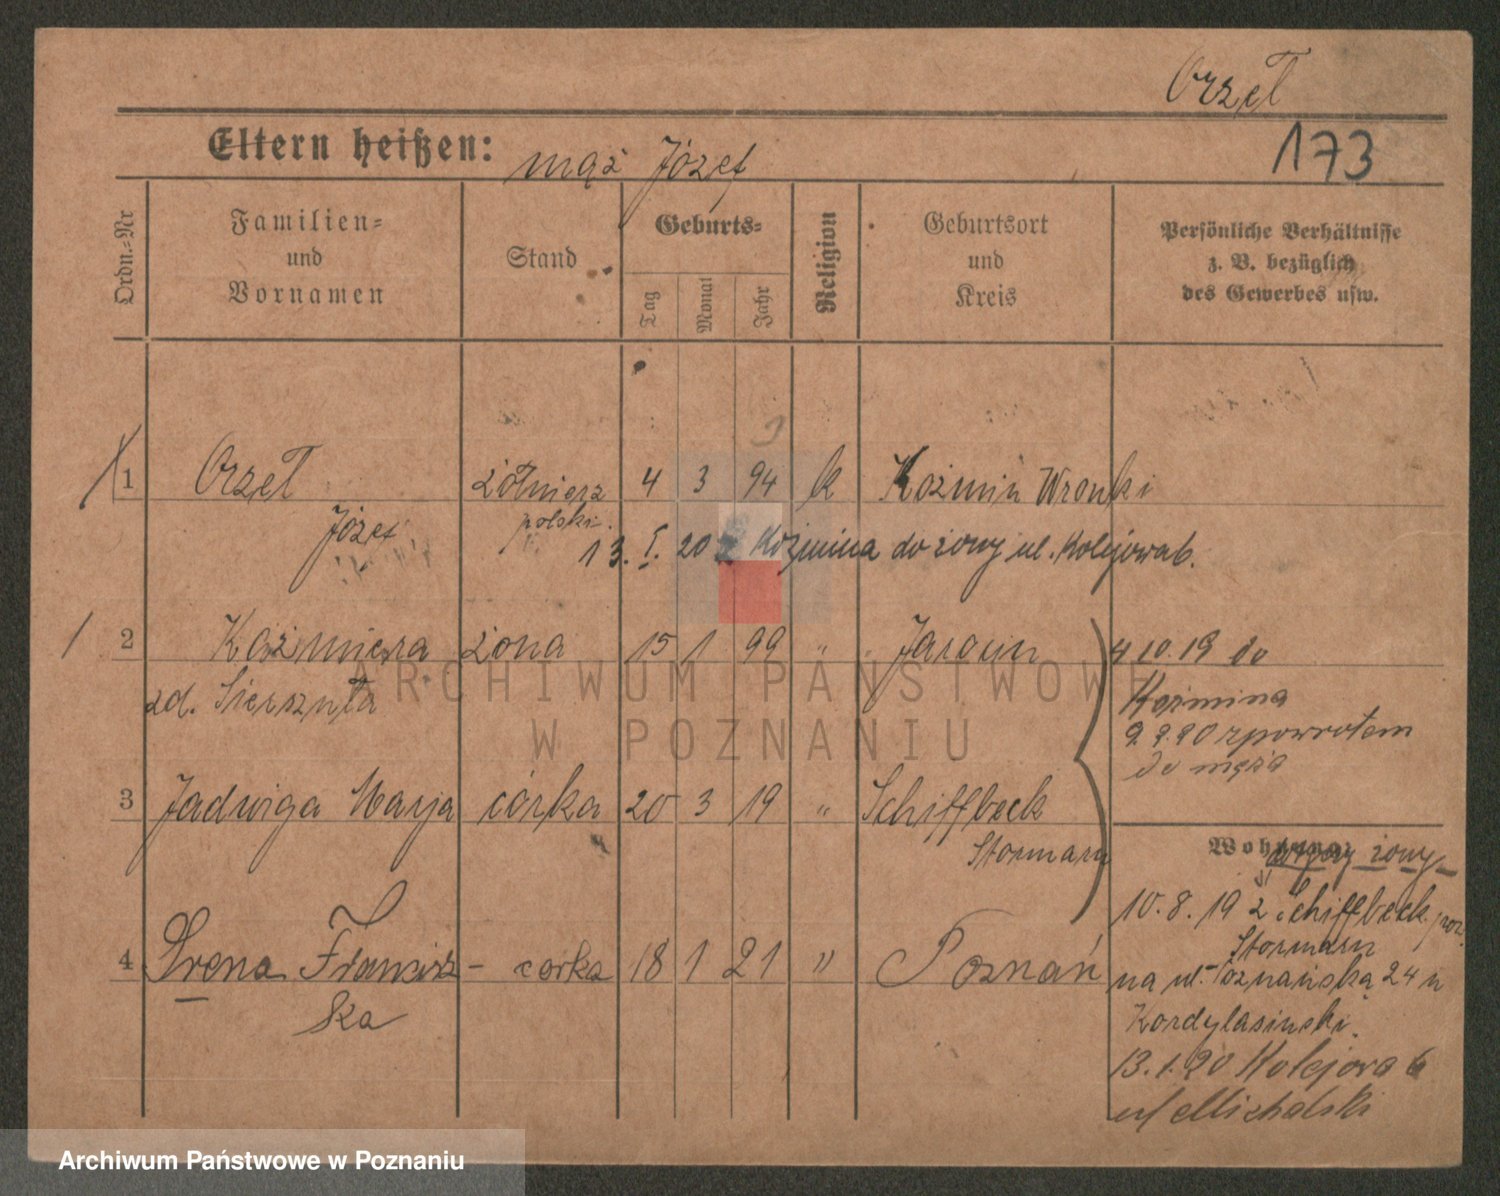 Orzeł
Eltern heißen: mąż Józef
173
Ordn.-Nr
Familien-
und
Vornamen
Stand
Geburts-
Tag
Monat
Jahr
Religion
Geburtsort
und
Kreis
Persönliche Verhältnisse
z. B. bezüglich
des Gewerbes usw.
1 Orzeł żołnierz 4 3 94 k Koźmin Wronki
Józef polski.
13. I. 20 z Koźmina do żony ul. Kolejowa 6.
2 Kazimiera żona 15 1 99 " Jarocin 4 10. 19 do
zd. Sierszuła Koźmina
9. 9. 20 zpowrotem
do męża
3 Jadwiga Marja córka 20 3 19 " Schiffbeck
Stormarn
Wohnung: żony
10. 8. 19 z Schiffbeck
Stormarn
4 Irena Francisz- corka 18 1 21 " Poznań
ka
na ul. Poznańską 24 u
Kordylasiński.
13. 1. 20 Kolejowa 6
u/ Michalski
ARCHIWUM PAŃSTWOWE
W POZNANIU
Archiwum Państwowe w Poznaniu